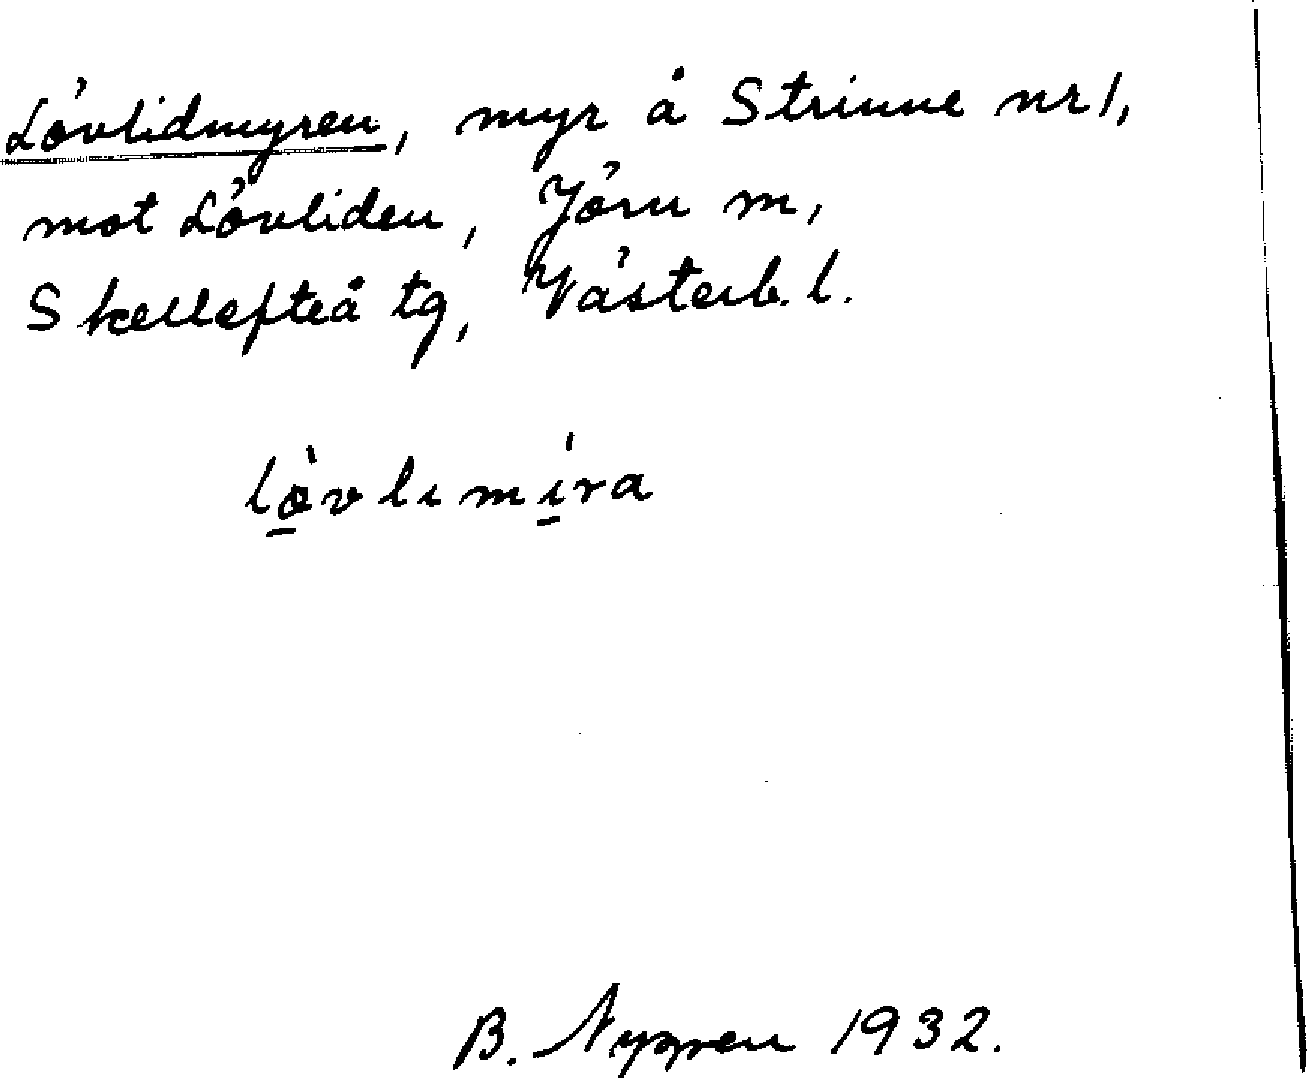 Lövlidmyren, myr å Strinne nr 1,
mot Lövliden, Jörn m,
Skellefteå tg, Västerb. l.
lövlimíra
B. Nygren 1932.